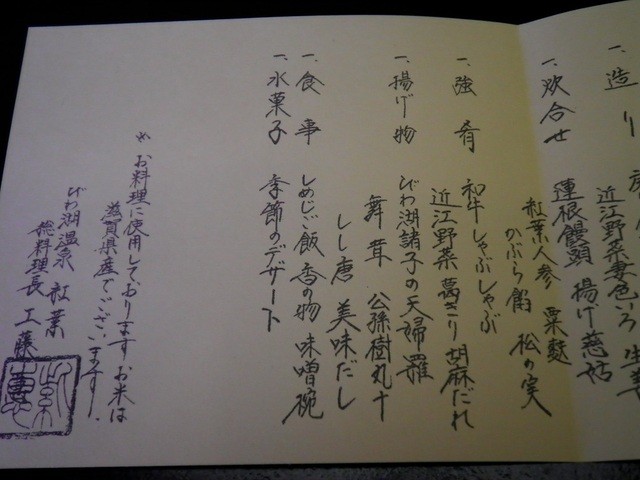 一、造り
近江野菜妻色いろ
一、炊合せ
蓮根饅頭 揚げ慈姑
紅葉人参 粟麩
かぶら餡 松の実
一、強肴
和牛しゃぶしゃぶ
近江野菜 葛きり 胡麻だれ
一、揚げ物
びわ湖諸子の天婦羅
舞茸 公孫樹丸十
しし唐 美味だし
一、食事
しめじご飯 香の物 味噌椀
一、水菓子
季節のデザート
お料理に使用しております お米は
滋賀県産でございます。
びわ湖温泉 紅葉
総料理長 工藤